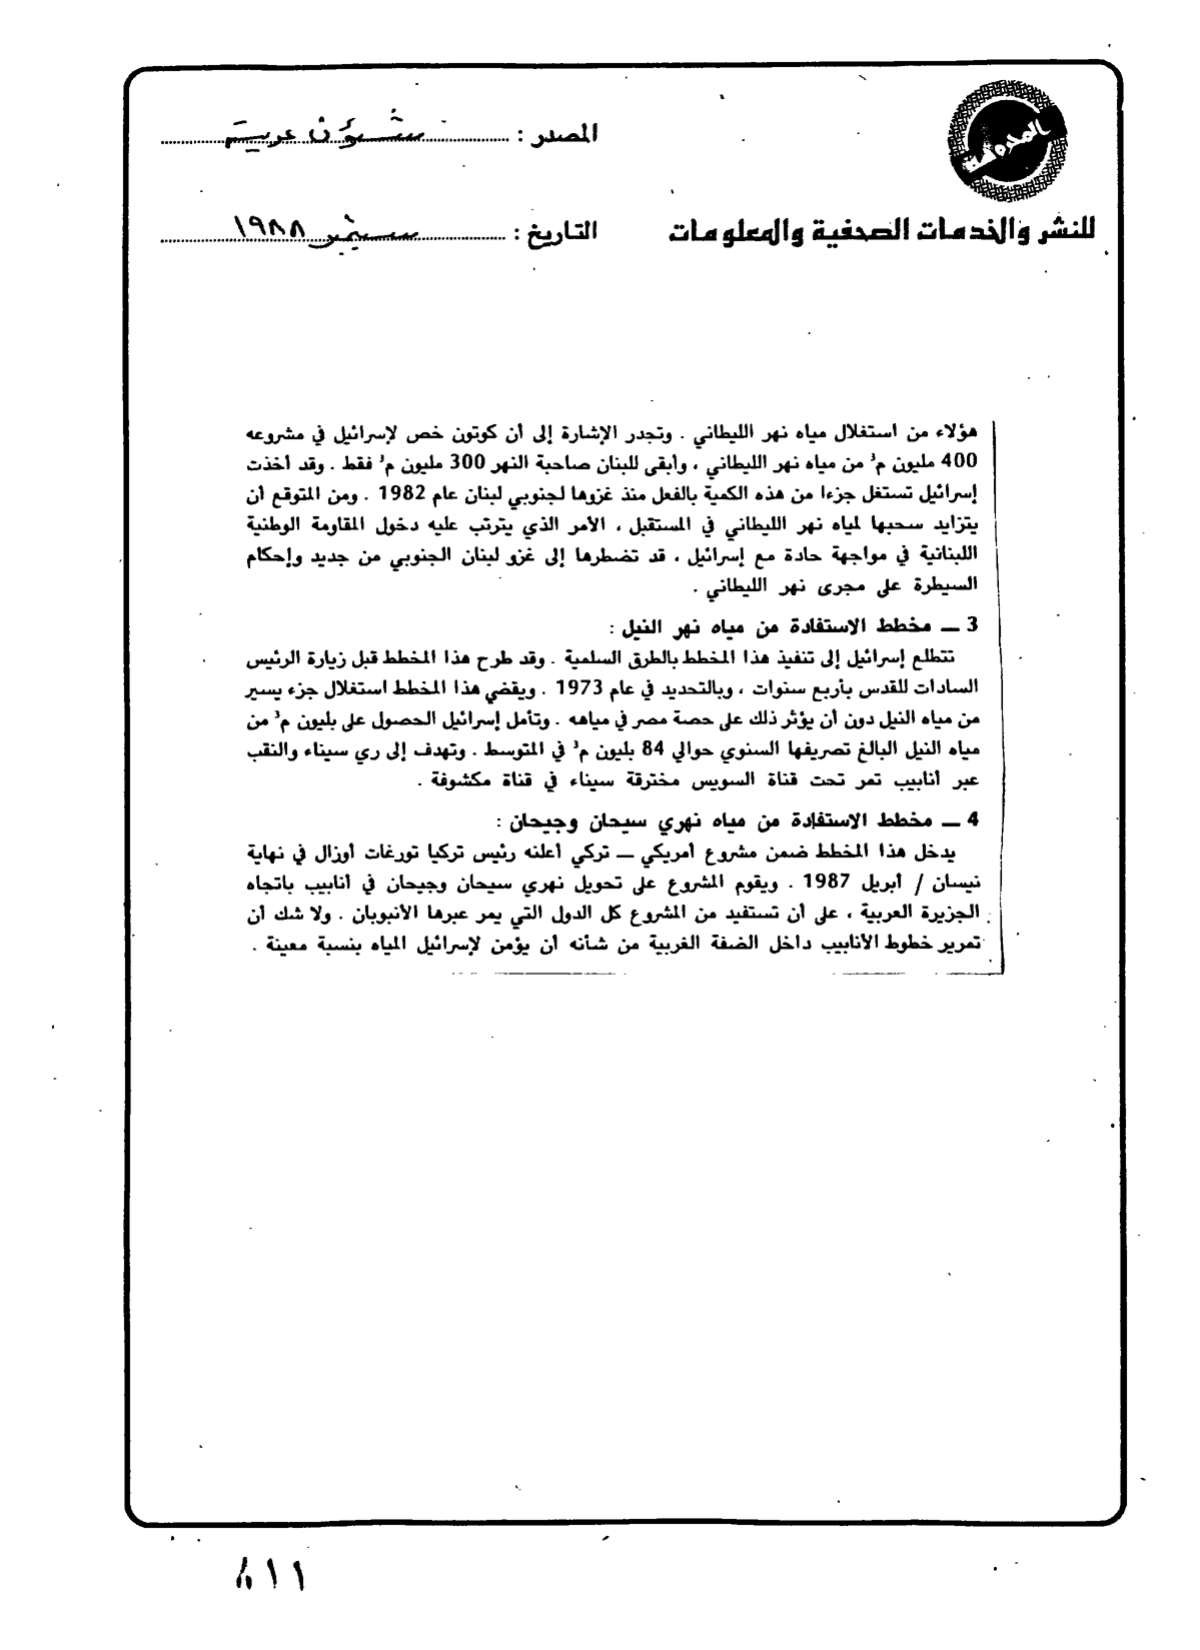 المصدر : شئون عربية
للنشر والخدمات الصحفية والمعلومات
التاريخ : سبتمبر ١٩٨٨
هؤلاء من استغلال مياه نهر الليطاني . وتجدر الإشارة إلى أن كوتون خص لإسرائيل في مشروعه
400 مليون م³ من مياه نهر الليطاني ، وأبقى للبنان صاحبة النهر 300 مليون م³ فقط . وقد أخذت
إسرائيل تستغل جزءا من هذه الكمية بالفعل منذ غزوها لجنوبي لبنان عام 1982 . ومن المتوقع أن
يتزايد سحبها لمياه نهر الليطاني في المستقبل ، الأمر الذي يترتب عليه دخول المقاومة الوطنية
اللبنانية في مواجهة حادة مع إسرائيل ، قد تضطرها إلى غزو لبنان الجنوبي من جديد وإحكام
السيطرة على مجرى نهر الليطاني .
3 ــ مخطط الاستفادة من مياه نهر النيل :
تتطلع إسرائيل إلى تنفيذ هذا المخطط بالطرق السلمية . وقد طرح هذا المخطط قبل زيارة الرئيس
السادات للقدس بأربع سنوات ، وبالتحديد في عام 1973 . ويقضي هذا المخطط استغلال جزء يسير
من مياه النيل دون أن يؤثر ذلك على حصة مصر في مياهه . وتأمل إسرائيل الحصول على بليون م³ من
مياه النيل البالغ تصريفها السنوي حوالي 84 بليون م³ في المتوسط . وتهدف إلى ري سيناء والنقب
عبر أنابيب تمر تحت قناة السويس مخترقة سيناء في قناة مكشوفة .
4 ــ مخطط الاستفادة من مياه نهري سيحان وجيحان :
يدخل هذا المخطط ضمن مشروع أمريكي ــ تركي أعلنه رئيس تركيا تورغات أوزال في نهاية
نيسان / أبريل 1987 . ويقوم المشروع على تحويل نهري سيحان وجيحان في أنابيب باتجاه
الجزيرة العربية ، على أن تستفيد من المشروع كل الدول التي يمر عبرها الأنبوبان . ولا شك أن
تمرير خطوط الأنابيب داخل الضفة الغربية من شأنه أن يؤمن لإسرائيل المياه بنسبة معينة .